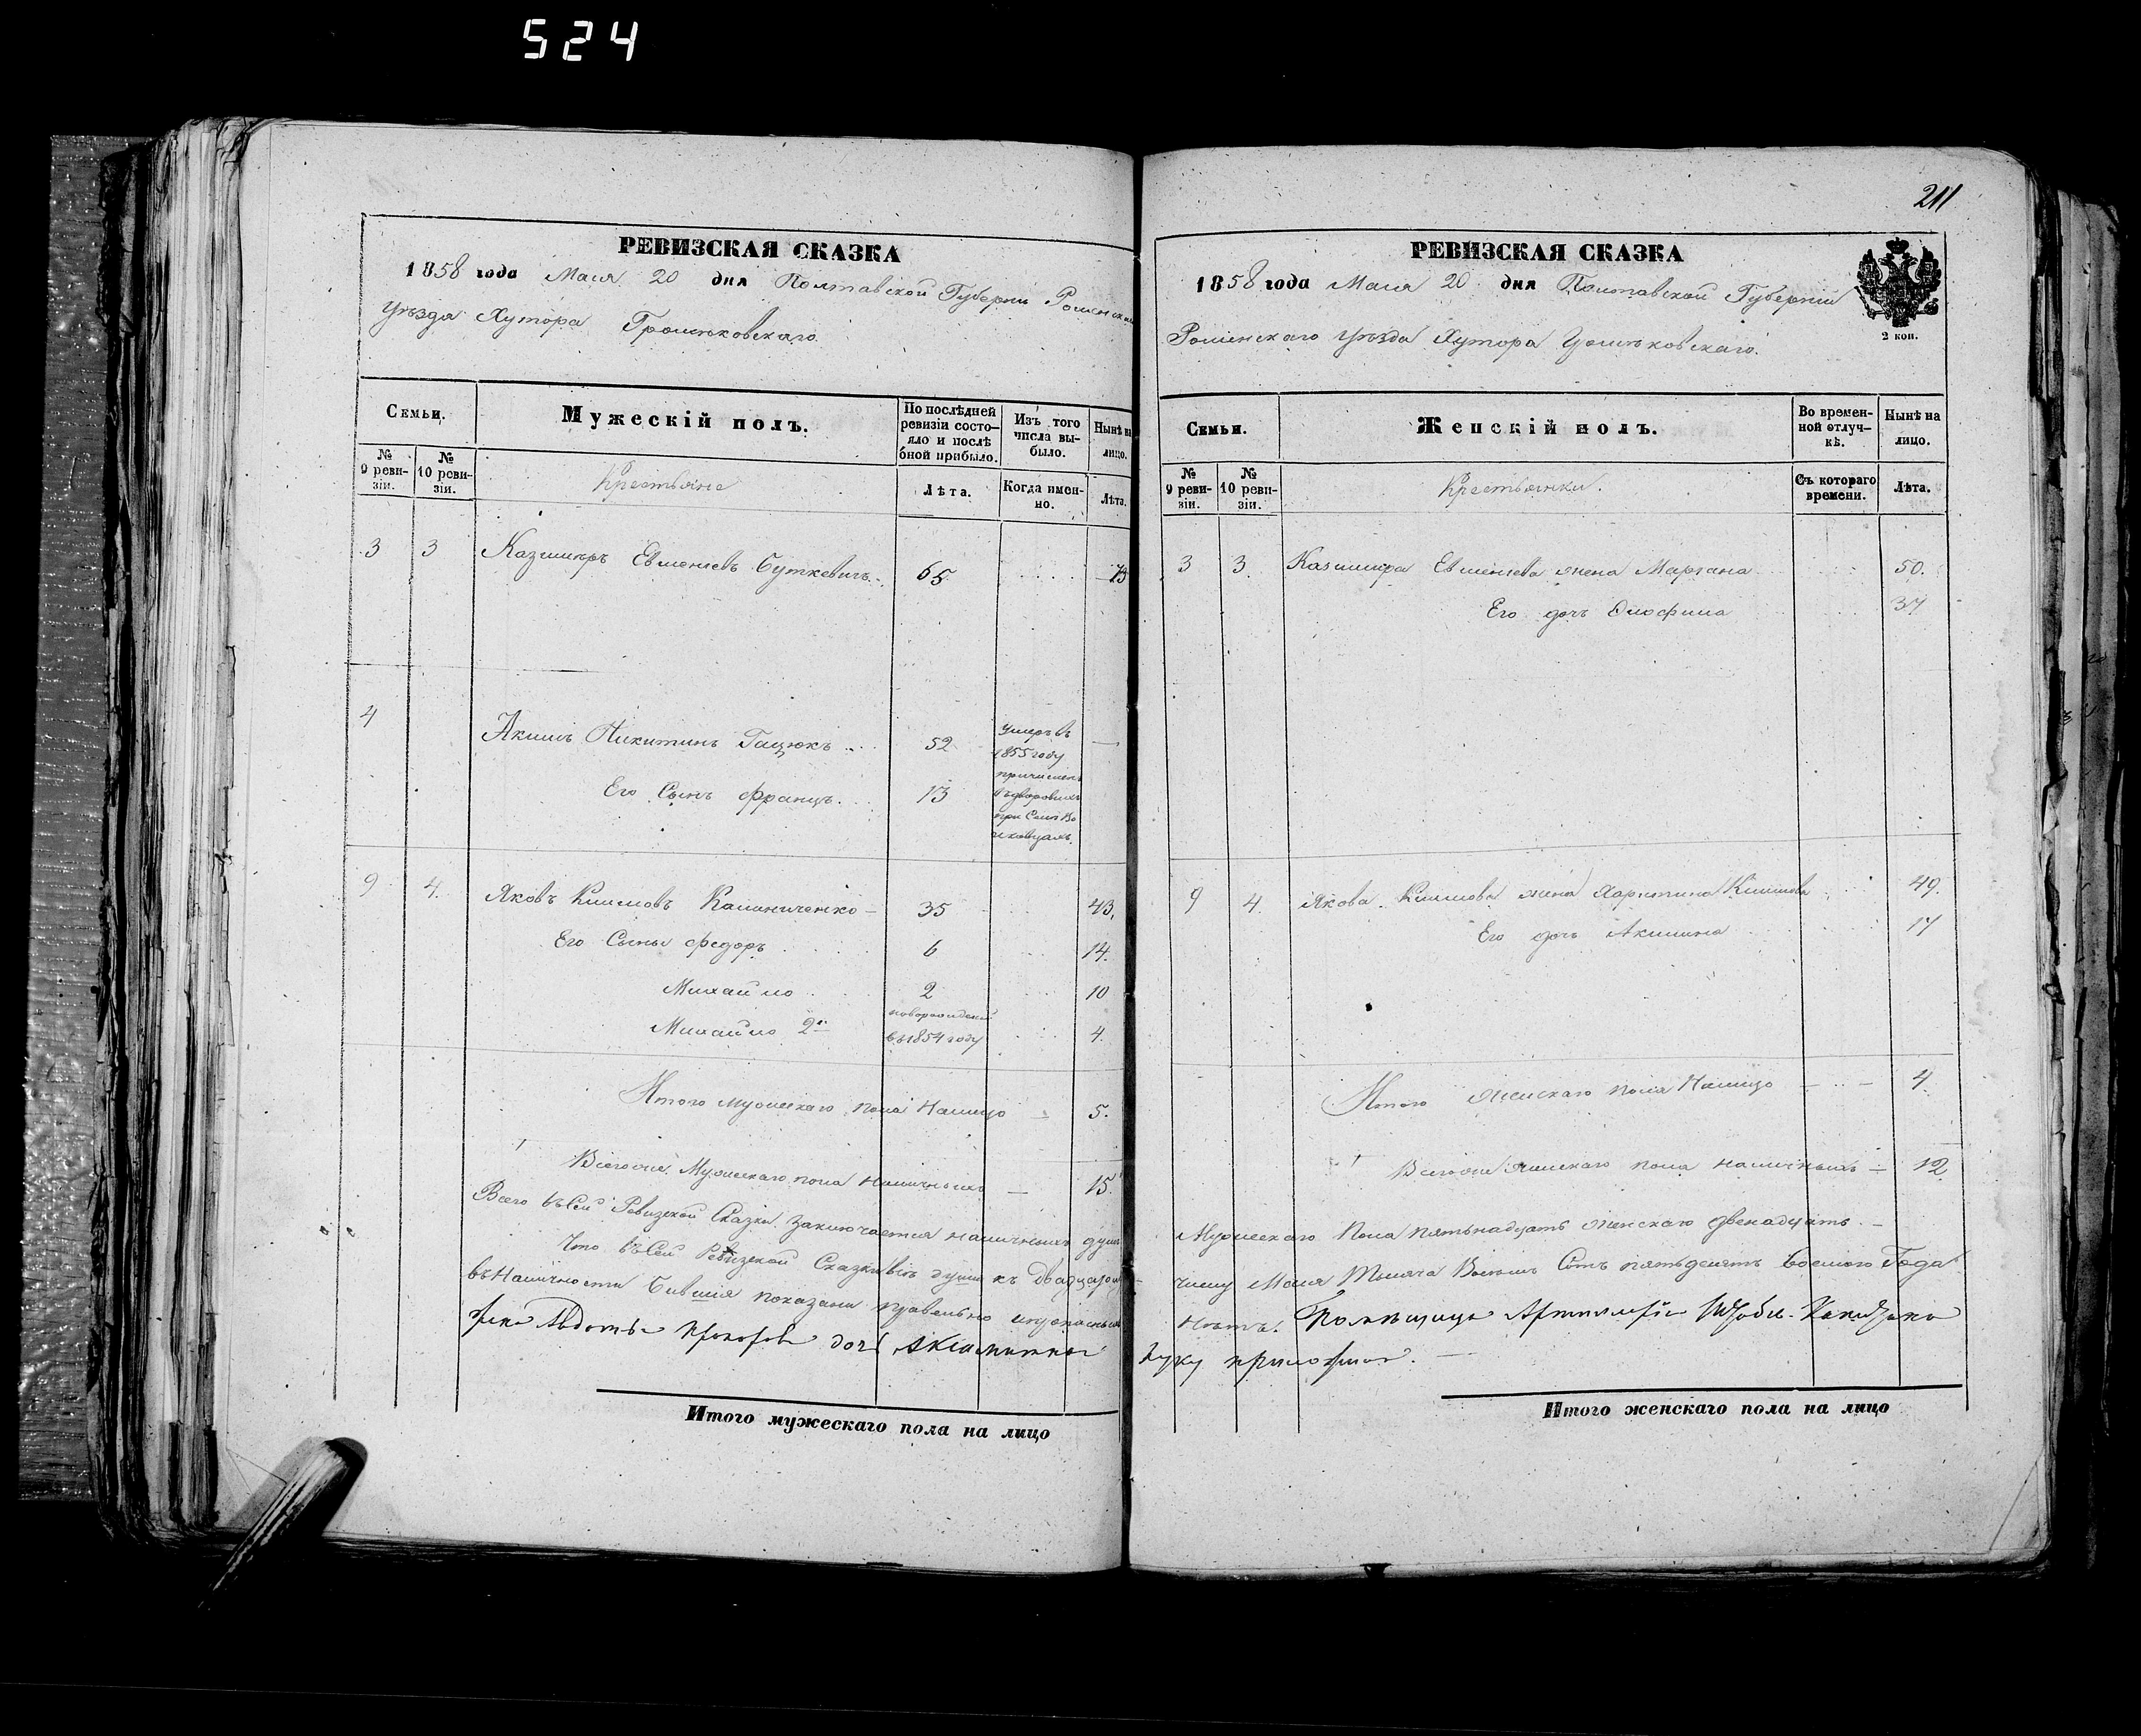 524
РЕВИЗСКАЯ СКАЗКА
1858 года Мая 20 дня Полтавской Губерніи Роменскаго
Уѣзда Хутора
Семьи.
Мужескій полъ.
По послѣдней ревизіи состояло и послѣ оной прибыло.
Изъ того числа выбыло.
Нынѣ на лицо.
№ 9 ревизіи.
№ 10 ревизіи.
Крестьяне
Лѣта.
Когда именно.
Лѣта.
3 3 Казимиръ Евменіевъ Буткевичь 65 73
4 Акимъ Никитинъ Гацюкъ 52 Умеръ въ 1855 году —
Его Сынъ Францъ 13 причисленъ
9 4. Яковъ Климовъ Калиниченко — 35 43.
Его Сыны Федоръ 6 14.
Михайло 2 10
Михайло 2й новорожденный въ 1854 году 4.
Итого мужескаго пола налицо — 5.
Всего мужескаго пола наличныхъ — 15.
Всего въ сей Ревизской Сказки заключается наличныхъ душъ
Что въ сей Ревизской Сказки всѣ души къ двадцатому
въ наличности бывшія показаны правельно
211
РЕВИЗСКАЯ СКАЗКА
2 коп.
1858 года Мая 20 дня Полтавской Губерніи
Роменскаго Уѣзда Хутора
Семьи.
Женскій полъ.
Во временной отлучкѣ.
Нынѣ на лицо.
№ 9 ревизіи.
№ 10 ревизіи.
Крестьянки.
Съ котораго времени.
Лѣта.
3 3. Казимира Евменіева жена Маріана 50.
Его дочь 37
9 4. Якова Климова жена Харитина Климова 49.
Его дочь Акилина 17
Итого женскаго пола налицо — — 4
женскаго пола наличныхъ — 12
Мужескаго пола пятьнадцать женскаго двенадцать. —
числу Мая Тысяча Восемь Сотъ пятьдесятъ восмого Года
нѣтъ. Помѣщица
руку приложила. —
Итого мужескаго пола на лицо
Итого женскаго пола на лицо